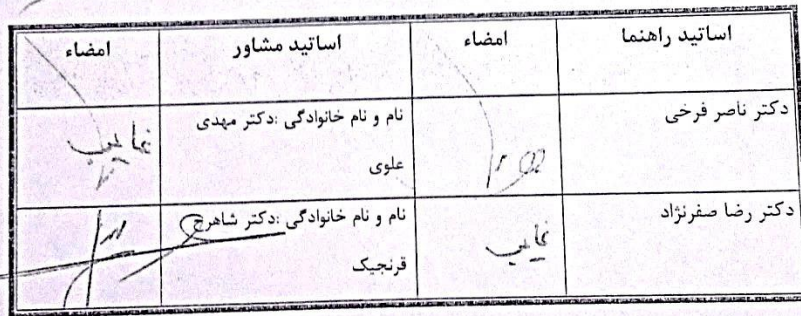 اساتید راهنما
امضاء
اساتید مشاور
امضاء
دکتر ناصر فرخی
نام و نام خانوادگی :دکتر مهدی
علوی
غایب
دکتر رضا صفرنژاد
غایب
نام و نام خانوادگی :دکتر شاهرخ
قرنجیک